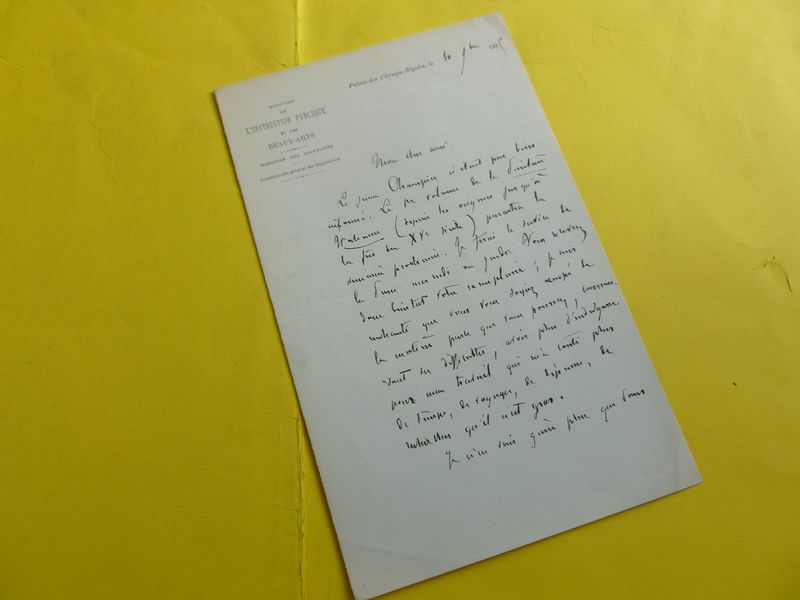 Palais des Champs-Elysées, le 30 9bre 1885
MINISTÈRE
DE
L'INSTRUCTION PUBLIQUE
ET DES
BEAUX-ARTS
DIRECTION DES BEAUX-ARTS
Commissariat général des Expositions
Mon cher ami.
Le jeune Champion s'était pour bien
informé. Le 1er volume de la Peinture
Italienne (depuis les origines jusqu'à
la fin du XVe siècle) paraîtra la
semaine prochaine. Je ferai le service de
la presse mardi ou jeudi. Vous recevrez
donc bientôt votre exemplaire ; je suis
enchanté que vous vous soyez occupé de
la matière parce que vous pourrez, connais-
sant ses difficultés, avoir plus d'indulgence
pour mon travail qui m'a coûté plus
de temps, de voyages, de dépenses, de
recherches qu'il n'est gros.
Je n'en vois guère plus que vous